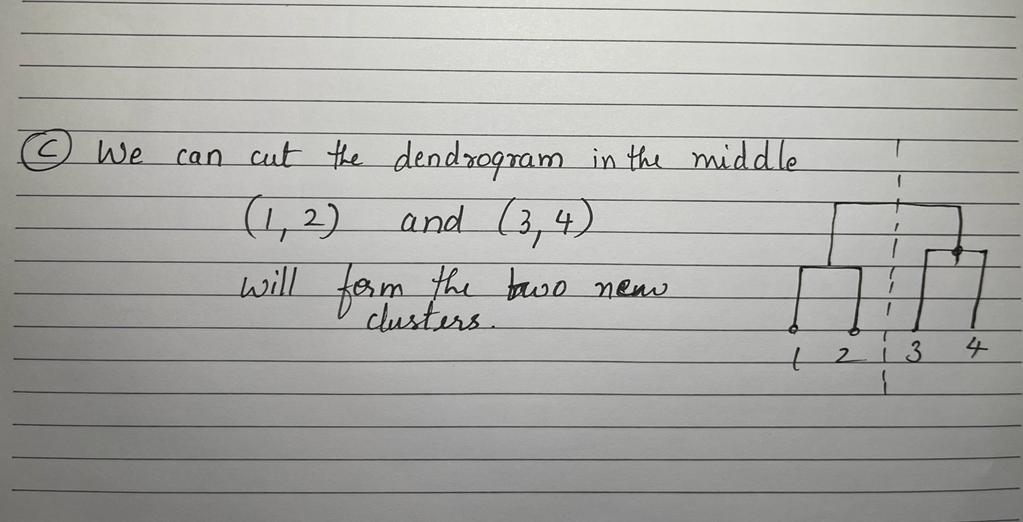 (C) We can cut the dendrogram in the middle
(1, 2) and (3, 4)
will form the two new
clusters.
1 2 3 4